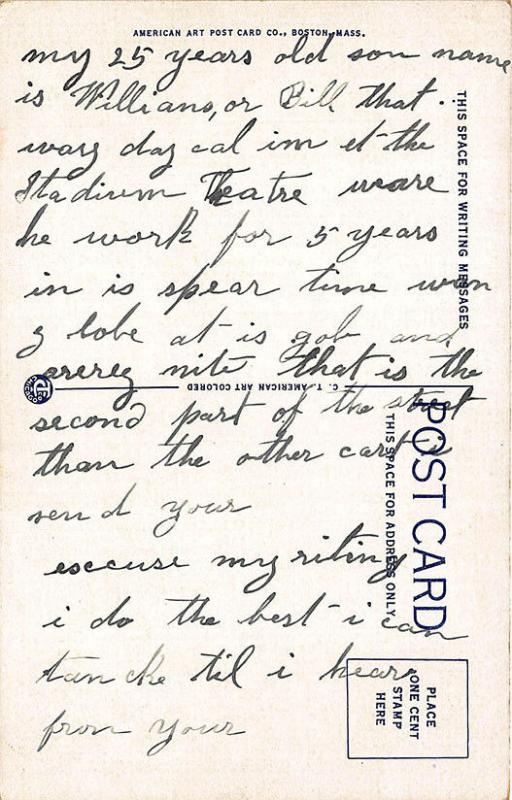 AMERICAN ART POST CARD CO., BOSTON, MASS.
my 25 years old son name
is Williams, or Bill that
way day cal im et the
Stadium Teatre weare
he work for 5 years
in is spear time wen
g lobe at is gob and
nite that is the
second part of the street
than the other card i
send your
escuse my riting
i do the best i can
tancke til i hear
from your
THIS SPACE FOR WRITING MESSAGES
C. T. AMERICAN ART COLORED
POST CARD
THIS SPACE FOR ADDRESS ONLY
PLACE
ONE CENT
STAMP
HERE